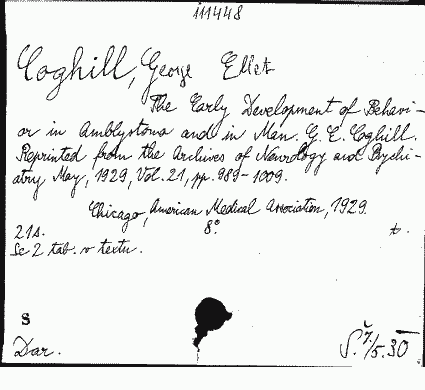 i11448
Coghill, George Ellet
The Early Development of Behavi-
or in Amblystoma and in Man. G. E. Coghill.
Reprinted from the Archives of Neurology and Psychi-
atry May, 1929, Vol. 21, pp. 989-1009.
Chicago, American Medical Association, 1929.
21s. 8° t.
Sc 2 tab. v textu.
S
Dar. Š. 7/5.30